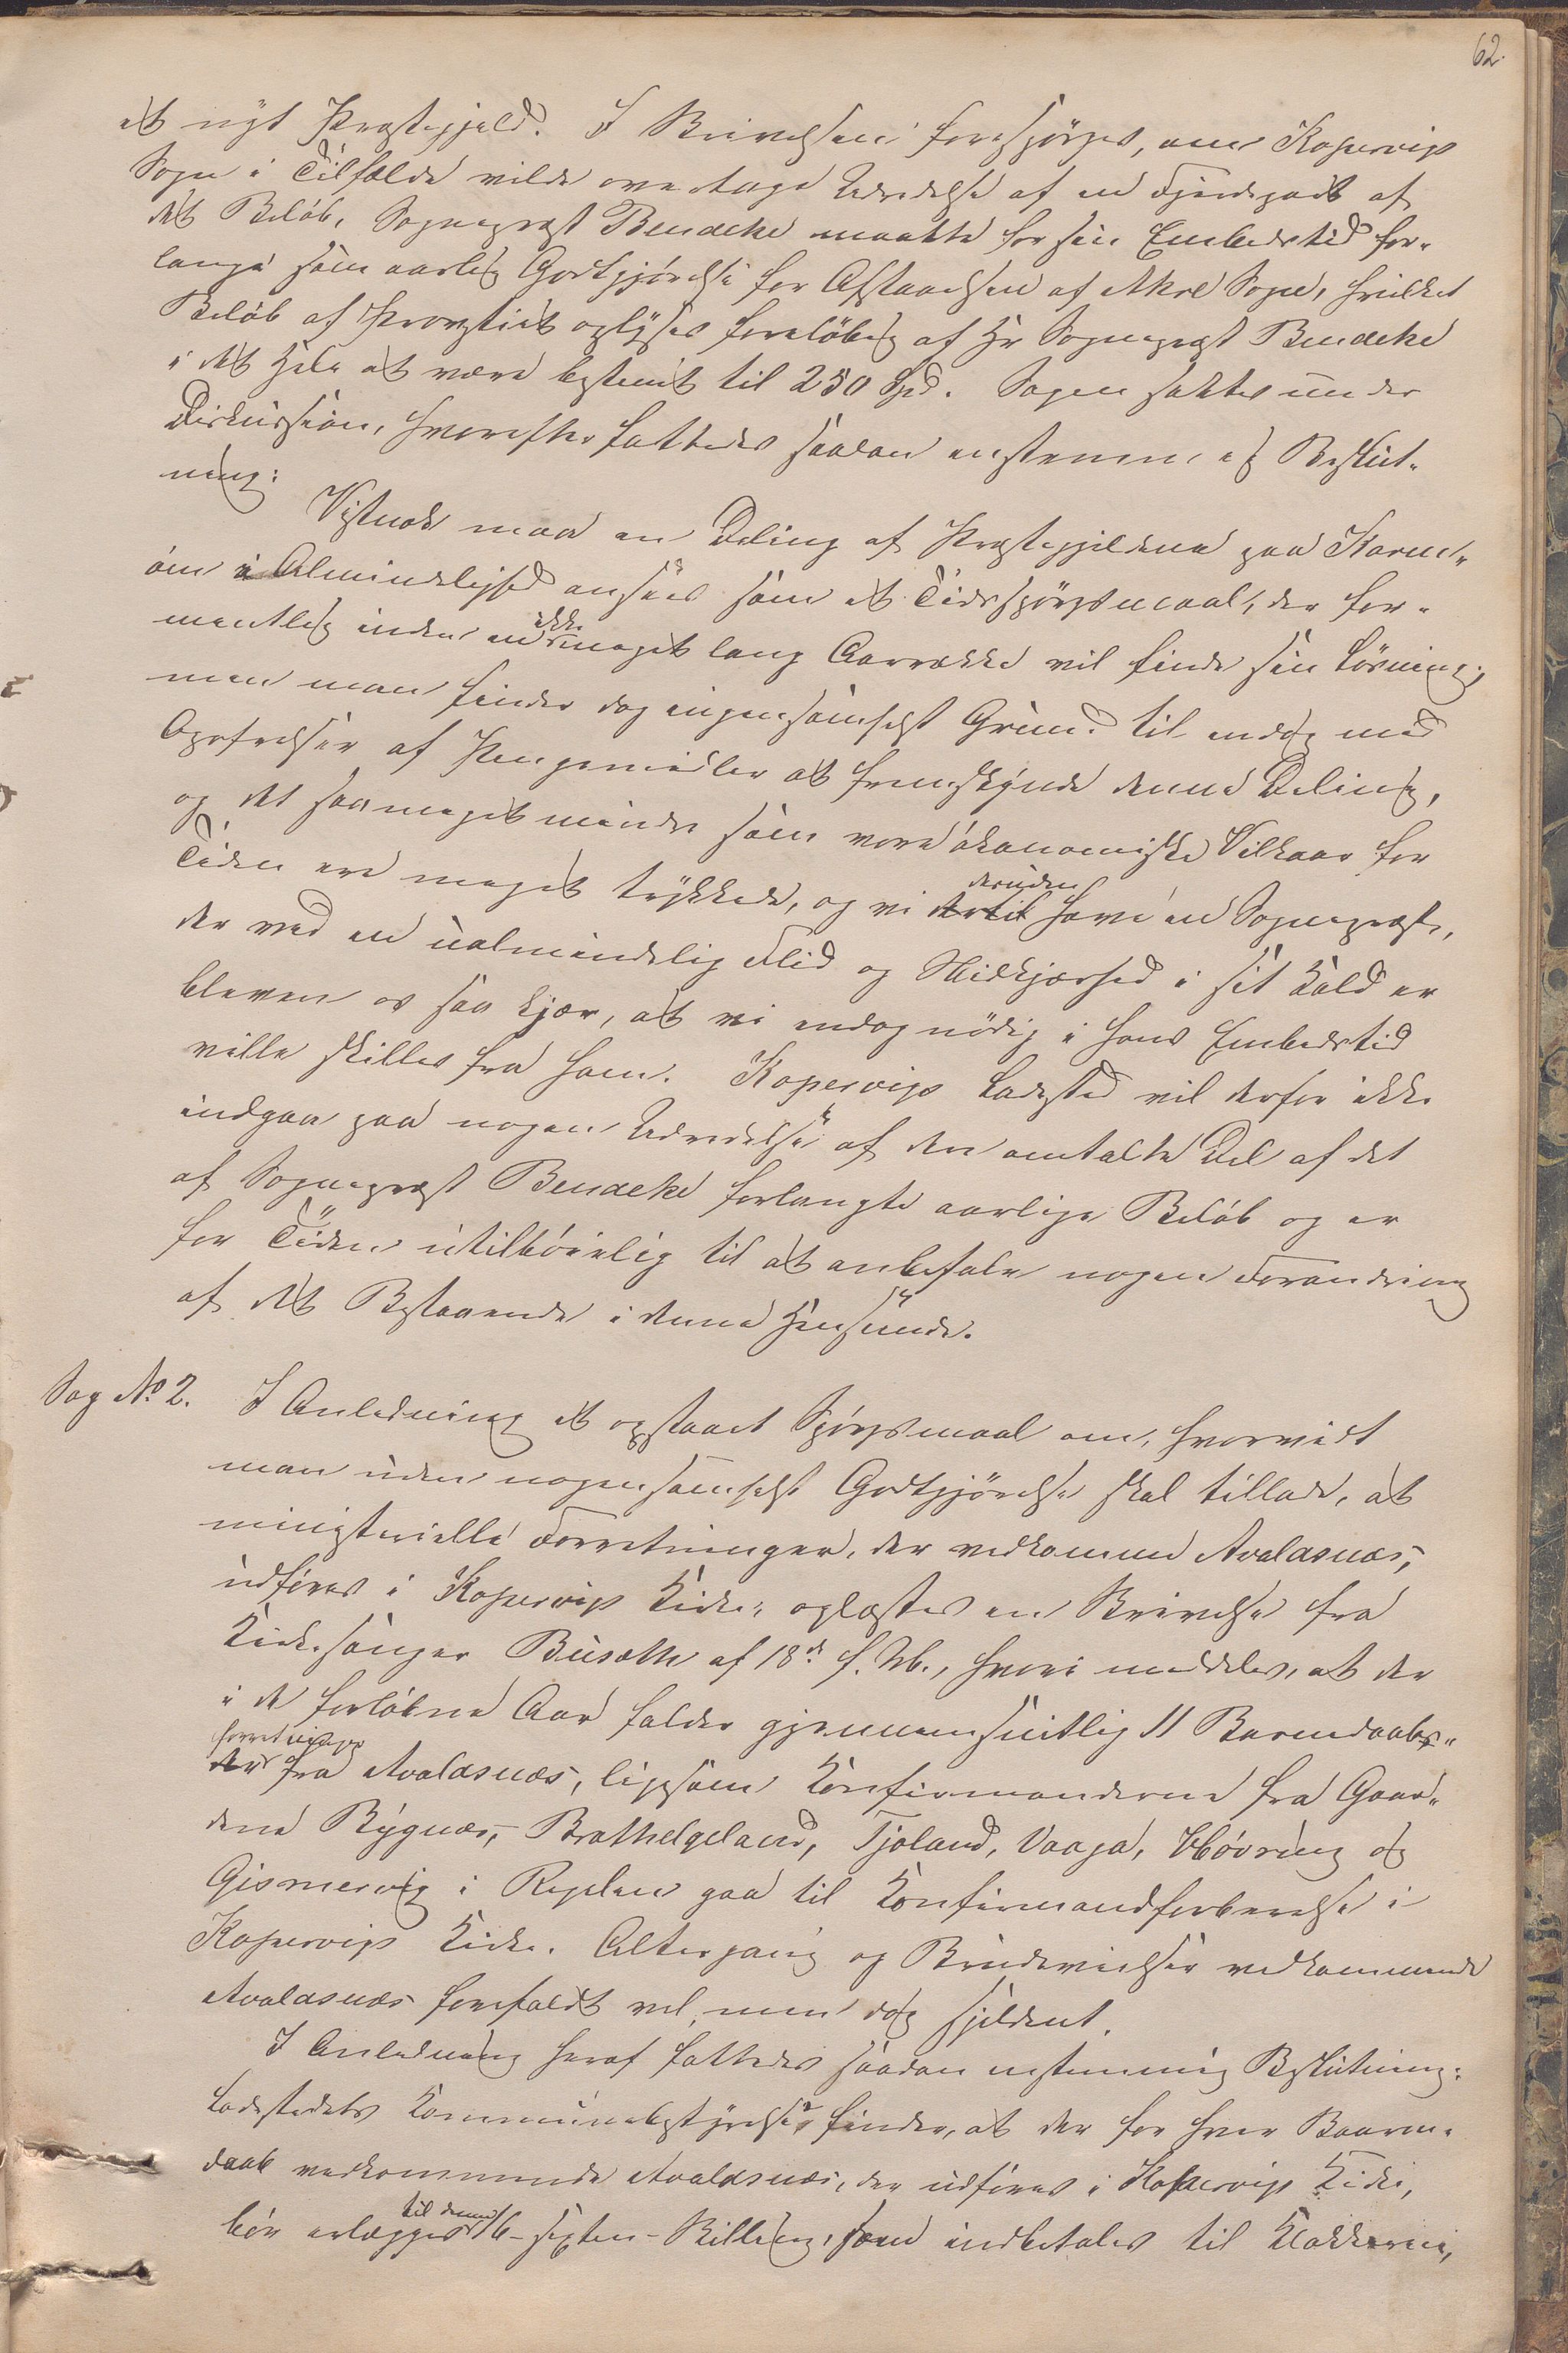 62.
et nyt Præstegjeld. I Skrivelsen forespørges, om Kopervigs
Sogn i Tilfælde vilde overtage Udredelse af en Fjerdepart af
det Beløb, Sognepræst Bendeke maatte for sin Embedstid for-
lange som aarlig Godtgjørelse for Afstaaelsen af Akre Sogn, hvilket
Beløb af Provstiet oplyses foreløbig af Hr Sognepræst Bendeke
i det Hele at være bestemt til 250 Spd. Sagen sattes under
Diskussion, hvorefter fattedes saadan enstemmig Beslut-
ning:
Vistnok maa en Deling af Præstegjeldene paa Karm-
øen i Almindelighed ansees som et Tidsspørgsmaal, der for-
mentlig inden en ikke meget lang Aarrække vil finde sin Løsning;
men man finder dog ingensomhelst Grund til endog med
Opofrelser af Pengemidler at fremskynde denne Deling,
og det saameget mindre som vore økonomiske Vilkaar for
Tiden ere meget trykkede, og vi dertil desuden have en Sognepræst,
der ved en ualmindelig Flid og Nidkjærhed i sit Kald er
bleven os saa kjær, at vi endog nødig i hans Embedstid
ville skilles fra ham. Kopervigs Ladested vil derfor ikke
indgaa paa nogen Udredelse af den omtalte Del af det
af Sognepræst Bendeke forlangte aarlige Beløb og er
for Tiden utilbøielig til at anbefale nogen Forandring
af det Bestaaende i denne Henseende.
Sag No 2. I Anledning et opstaaet Spørgsmaal om, hvorvidt
man uden nogensomhelst Godtgjørelse skal tillade, at
ministerielle Forretninger, der vedkomme Avaldsnæs,
udføres i Kopervigs Kirke, oplæstes en Skrivelse fra
Kirkesanger Busæth af 18de f. M., hvori meddeles, at der
i de forløbne Aar falder gjennemsnitlig 11 Barnedaabs-
forretninger fra Avaldsnæs, ligesom Konfirmanderne fra Gaar-
dene Bygnæs, Brathelgeland, Fjoland, Vaaga, Høvring og
Gismervig i Regelen gaa til Konfirmandforberedelse i
Kopervigs Kirke. Altergang og Brudevielser vedkommende
Avaldsnæs forefaldt vel, men dog sjeldent.
I Anledning heraf fattedes saadan enstemmig Beslutning:
Ladestedets Kommunebestyrelse finder, at der for hver Baarne-
daab vedkommende Avaldsnæs, der udføres i Kopervigs Kirke,
bør erlægges til denne 16 - sexten - Skilling, som indbetales til Klokkeren,